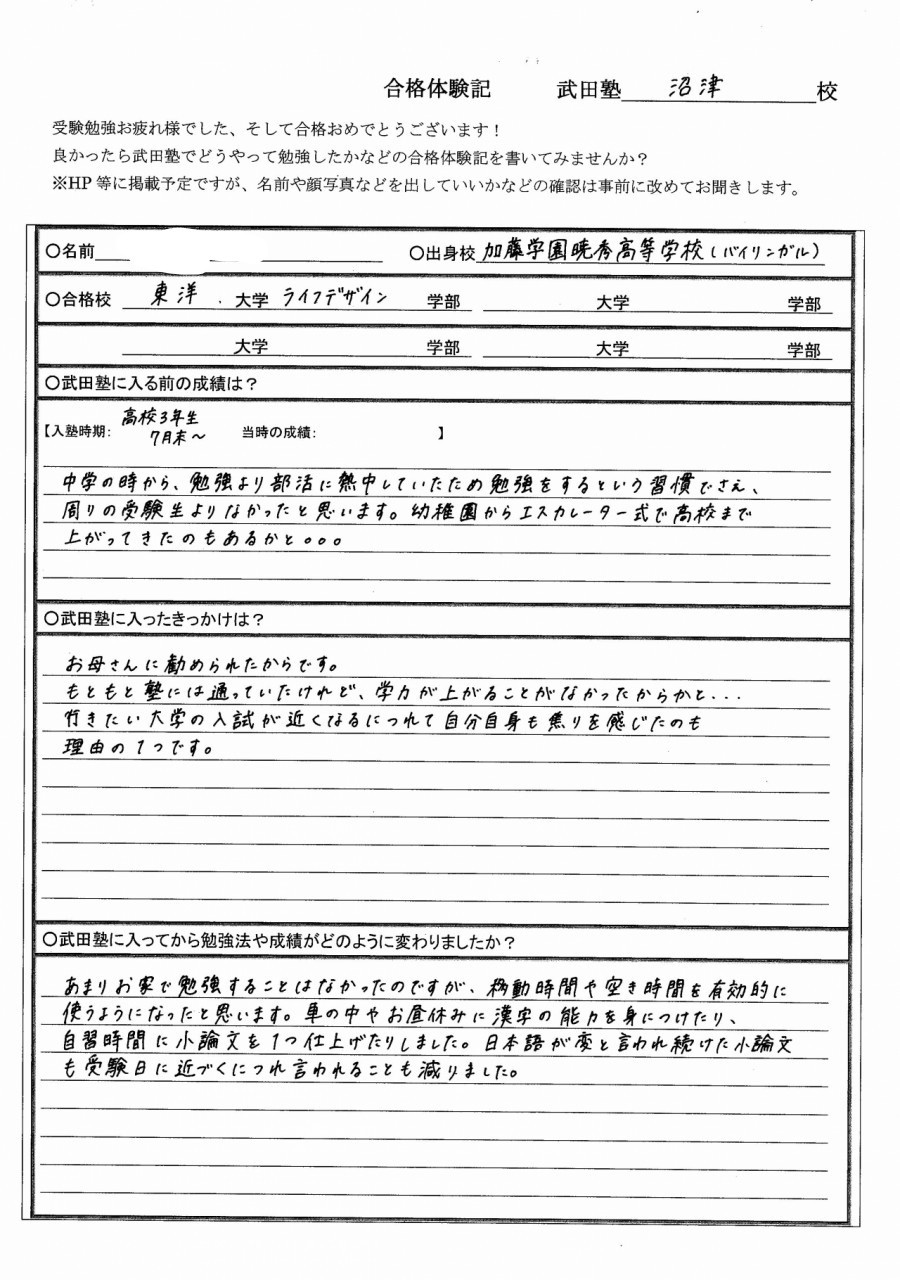 合格体験記 武田塾 沼津 校
受験勉強お疲れ様でした、そして合格おめでとうございます！
良かったら武田塾でどうやって勉強したかなどの合格体験記を書いてみませんか？
※HP 等に掲載予定ですが、名前や顔写真などを出していいかなどの確認は事前に改めてお聞きします。
○名前 ○出身校 加藤学園暁秀高等学校（バイリンガル）
○合格校 東洋 大学 ライフデザイン 学部 大学 学部
大学 学部 大学 学部
○武田塾に入る前の成績は？
【入塾時期： 高校3年生 7月末～ 当時の成績： 】
中学の時から、勉強より部活に熱中していたため勉強をするという習慣でさえ、
周りの受験生よりなかったと思います。幼稚園からエスカレーター式で高校まで
上がってきたのもあるかと。。。
○武田塾に入ったきっかけは？
お母さんに勧められたからです。
もともと塾には通っていたけれど、学力が上がることがなかったからかと...
行きたい大学の入試が近くなるにつれて自分自身も焦りを感じたのも
理由の1つです。
○武田塾に入ってから勉強法や成績がどのように変わりましたか？
あまりお家で勉強することはなかったのですが、移動時間や空き時間を有効的に
使うようになったと思います。車の中やお昼休みに漢字の能力を身につけたり、
自習時間に小論文を1つ仕上げたりしました。日本語が変と言われ続けた小論文
も受験日に近づくにつれ言われることも減りました。